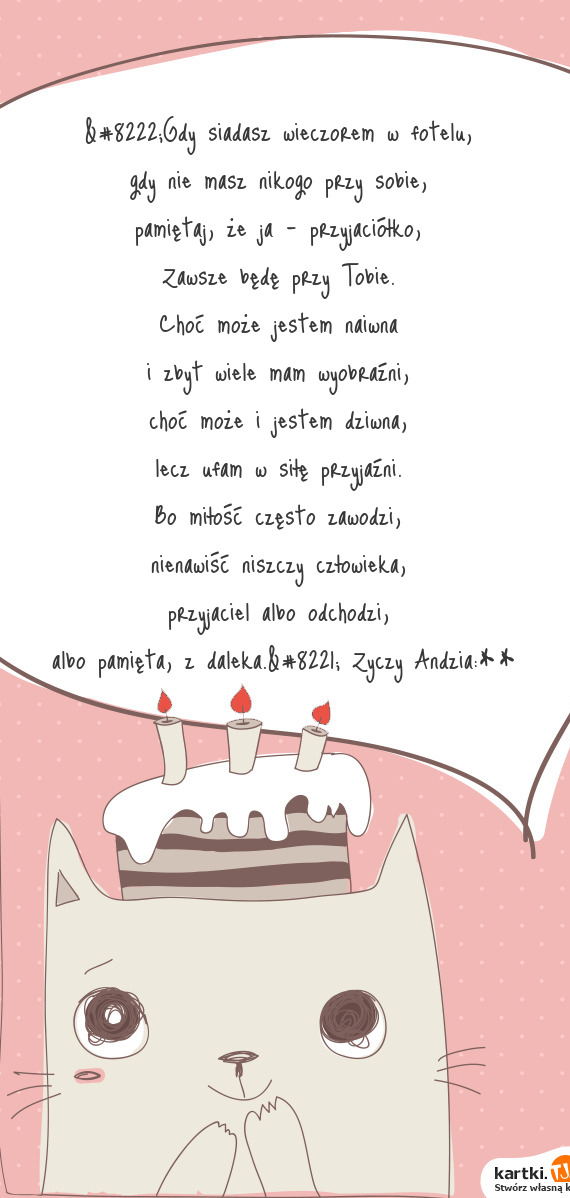 &#8222;Gdy siadasz wieczorem w fotelu,
gdy nie masz nikogo przy sobie,
pamiętaj, że ja - przyjaciółko,
Zawsze będę przy Tobie.
Choć może jestem naiwna
i zbyt wiele mam wyobraźni,
choć może i jestem dziwna,
lecz ufam w siłę przyjaźni.
Bo miłość często zawodzi,
nienawiść niszczy człowieka,
przyjaciel albo odchodzi,
albo pamięta, z daleka.&#8221; Zyczy Andzia:**
kartki.TJ
Stwórz własną k